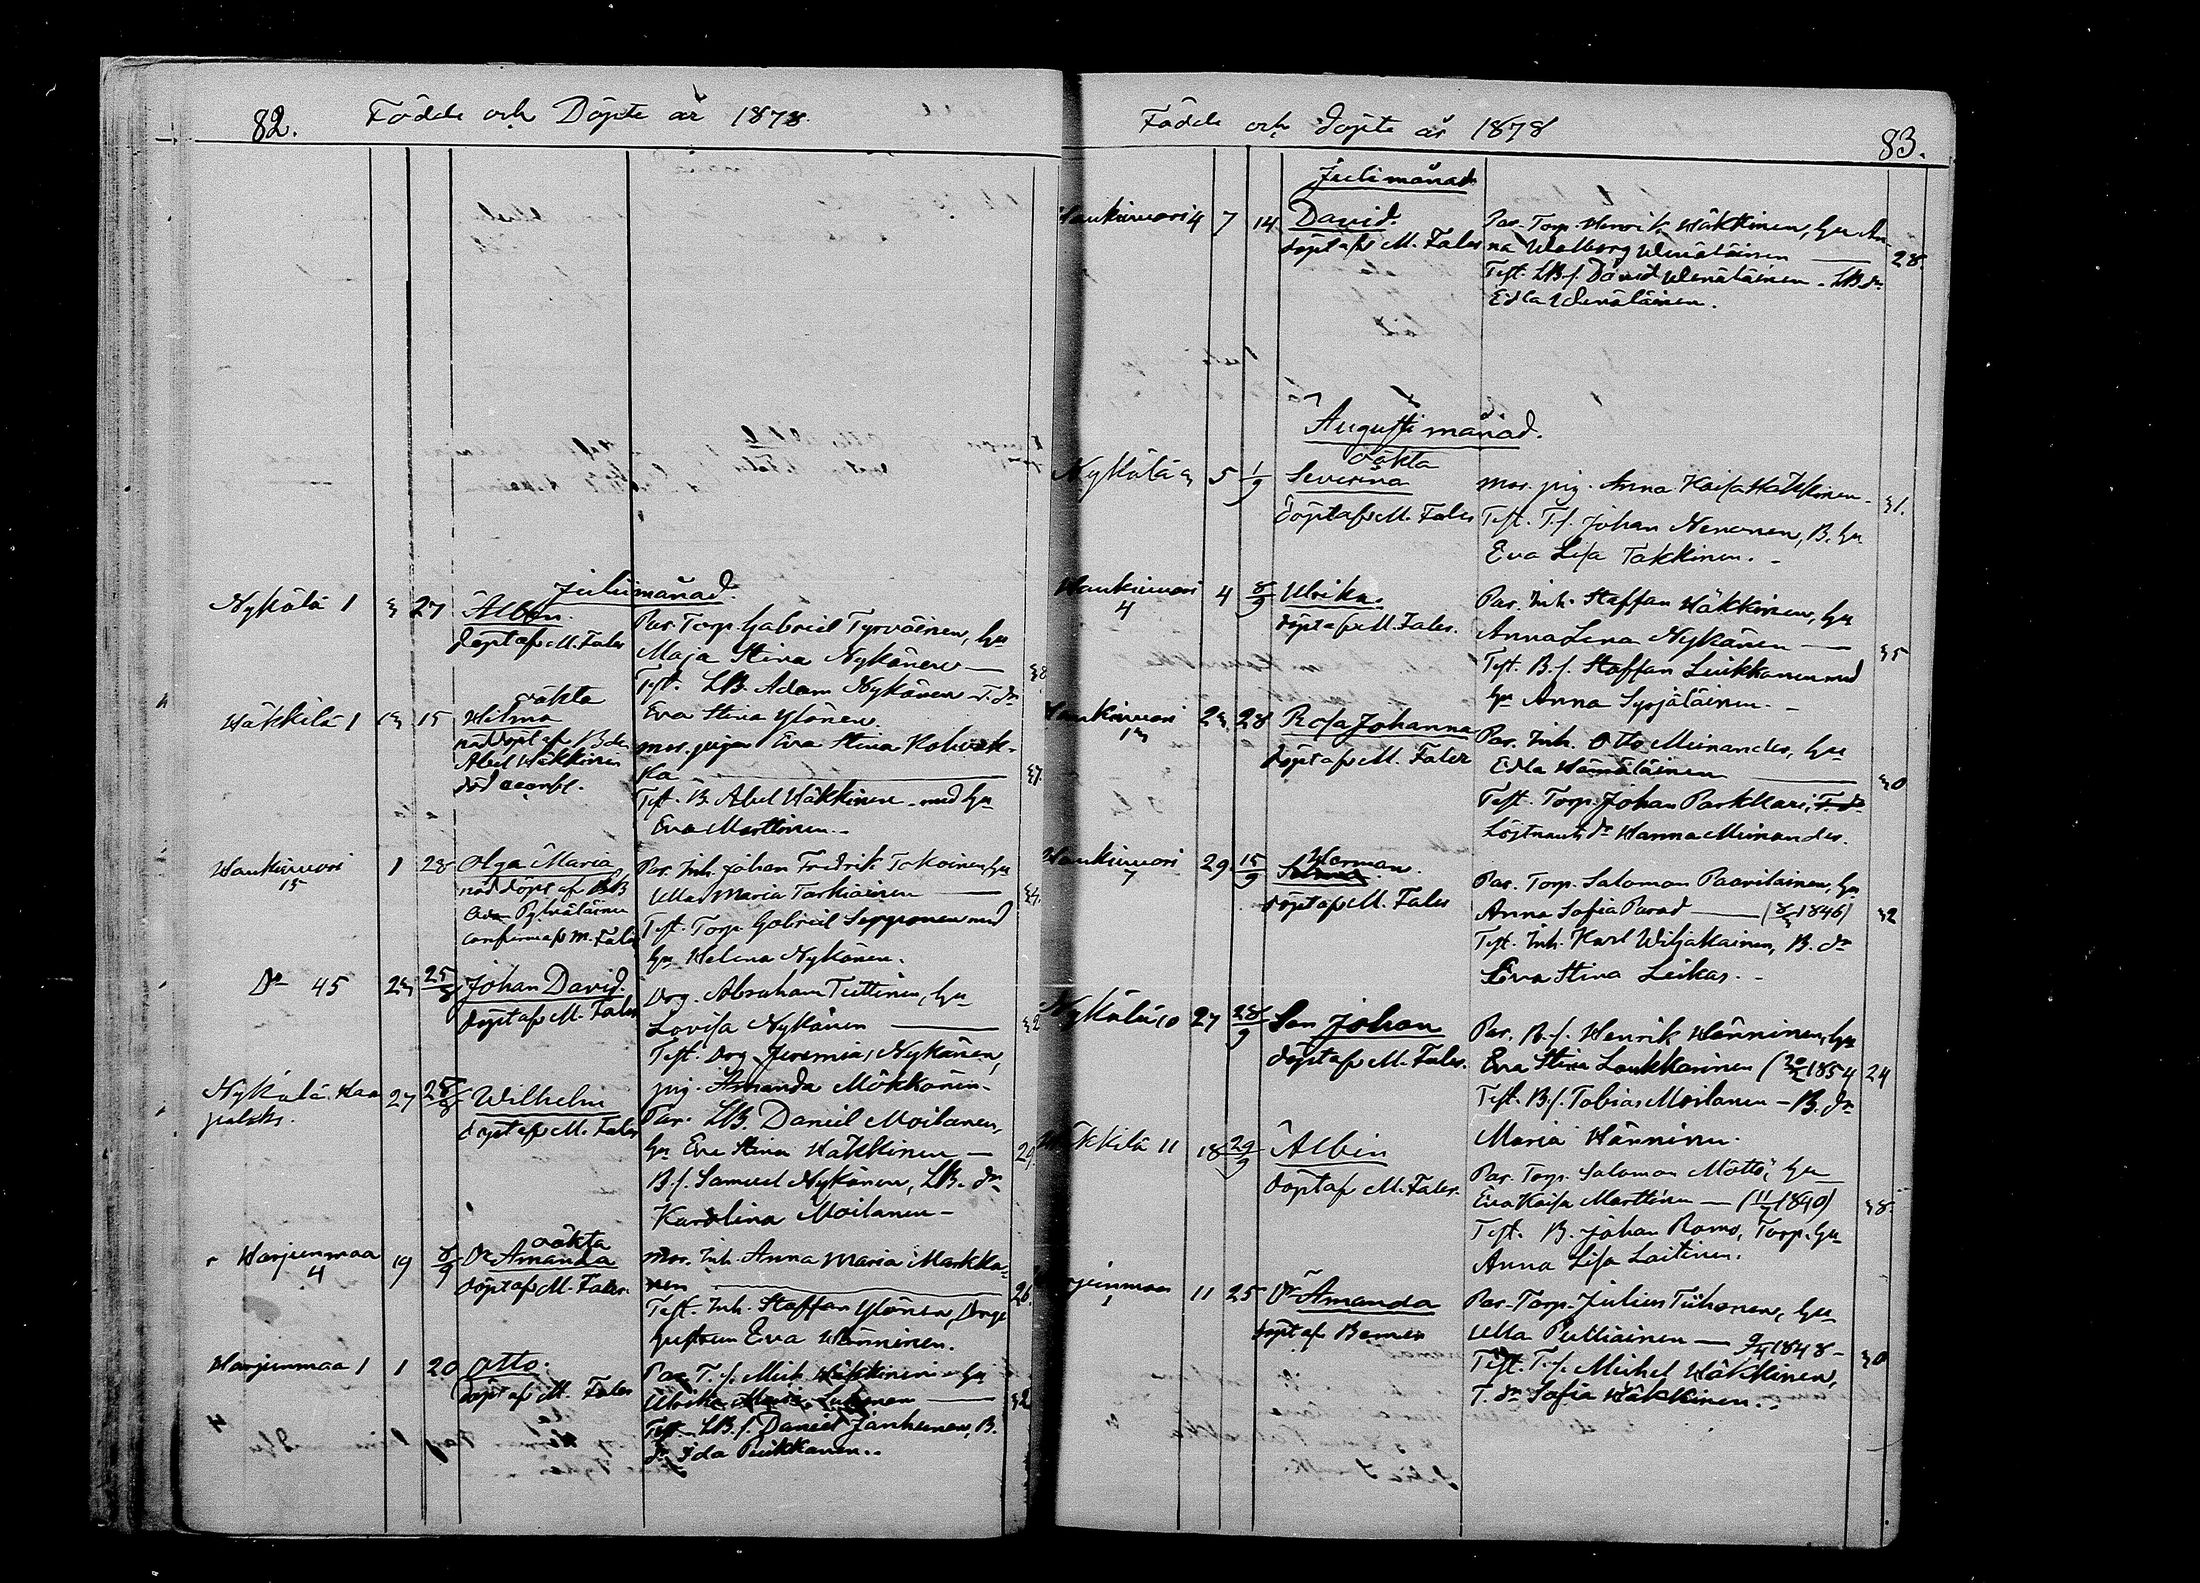 82. Födde och Döpte år 1878.
Juli månad.
Nykälä 1 3 27 Albin.
döpt af M. Fales
Par. Torp. Gabriel Tyrväinen, hu
Maja Stina Nykänen — 38
Test. LB. Adam Nykänen T. dr
Eva Stina Ylönen.
Häkkilä 1 13 15 oäkta
Hilma
nöddöpt af B. dr
Abel Häkkinen
död
mor. pigan Eva Stina Kohvak-
ka — 37.
Test. B. Abel Häkkinen med hu
Eva Marttinen.
Haukivuori 15 1 28 Olga Maria
nöddöpt af
Pylväläinen
confirm af M. Fales
Par. Inh. Johan Fredrik Tokoinen, hu
Ulla Maria Tarkiainen — 24.
Test. Torp. Gabriel Sepponen med
hu Helena Nykänen.
Do 45 23 25/8 Johan David.
döpt af M. Fales
Drg. Abraham Tuttinen, hu
Lovisa Nykänen — 32
Test. Drg Jeremias Nykänen,
pig. Amanda Mökkönen.
Nykälä Haa
palaks. 27 28/8 Wilhelm
döpt af M. Fales
Par. LB. Daniel Moilanen,
hu Eva Stina Häkkinen — 29
B.s. Samuel Nykänen, LB. dr
Karolina Moilanen —
Harjunmaa 4 19 8/9 oäkta
Dr Amanda
döpt af M. Fales.
mor. Inh. Anna Maria Markka-
nen — 26.
Test. Inh. Staffan Ylönen, Drge
hustrun Eva Hänninen.
Harjunmaa 1 1 20 Otto.
döpt af M. Fales
Par. T.s. Mich Häkkinen hu
Ulrika Maria — 32
Test. LB.s. Daniel Janhunen, B.
dr Ida Puikkanen.
Födde och döpte år 1878 83.
Juli månad
Haukivuori 4 7 14 David.
döpt af M. Fales
Par. Torp. Henrik Häkkinen, hu An-
na Walborg Wenäläinen — 28.
Test. LB.s. David Wenäläinen. LB dr
Edla Wenäläinen.
Augusti månad.
Nykälä 3 5 1/9 oäkta
Severina
döpt af M. Fales
mor. pig. Anna Kaisa Häkkinen. 31.
Test. T.s. Johan Nenonen, B. hu
Eva Lisa Takkinen.
Haukivuori 4 4 8/9 Ulrika.
döpt af M. Fales.
Par. Inh. Staffan Häkkinen, hu
Anna Lena Nykänen — 35
Test. B.s. Staffan Luikkanen med
hu Anna Syrjäläinen.
Haukivuori 13 23 28 Rosa Johanna
döpt af M. Fales
Par. Inh. Otto Meinander, hu
Edla Hämäläinen — 30
Test. Torp. Johan Parkkari, T. dr
Löjtnants dr Hanna Meinander.
Haukivuori 7 29 15/9 Herman.
döpt af M. Fales
Par. Torp. Salomon Paavilainen, hu
Anna Sofia Parad — (8/3 1846) 32
Test. Inh. Karl Wiljakainen, B. dr
Eva Stina Leikas.
Nykälä 10 27 28/9 Son Johan
döpt af M. Fales.
Par. B.s. Henrik Hänninen, hu
Eva Stina Laukkarinen (20/2 1854 24
Test. B.s. Tobias Moilanen — B. dr
Maria Hänninen.
Häkkilä 11 18 29/9 Albin
döpt af M. Fales.
Par. Torp. Salomon Mättö, hu
Eva Kaisa Marttinen — (11/7 1840) 38
Test. B. Johan Romo, Torp. hu
Anna Lisa Laitinen.
Harjunmaa 1 11 25 Dr Amanda
döpt af
Par. Torp. Julius Tiihonen, hu
Ulla Pulliainen — 9/4 1848 — 30
Test. T.s. Michel Häkkinen,
T. dr Sofia Häkkinen.